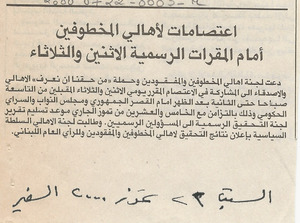 2000 0722-0003-M
اعتصامات لأهالي المخطوفين
أمام المقرات الرسمية الاثنين والثلاثاء
دعت لجنة اهالي المخطوفين والمفقودين وحملة «من حقنا ان نعرف» الاهالي
والاصدقاء الى المشاركة في الاعتصام المقرر يومي الاثنين والثلاثاء المقبلين من التاسعة
صباحا حتى الثانية بعد الظهر امام القصر الجمهوري ومجلس النواب والسراي
الحكومي وذلك بالتزامن مع الخامس والعشرين من تموز الجاري موعد تسليم تقرير
لجنة التحقيق الرسمية الى المسؤولين الرسميين. وطالبت لجنة الاهالي السلطة
السياسية بإعلان نتائج التحقيق لاهالي المخطوفين والمفقودين وللرأي العام اللبناني.
السبت ٢٢ تموز ٢٠٠٠ السفير